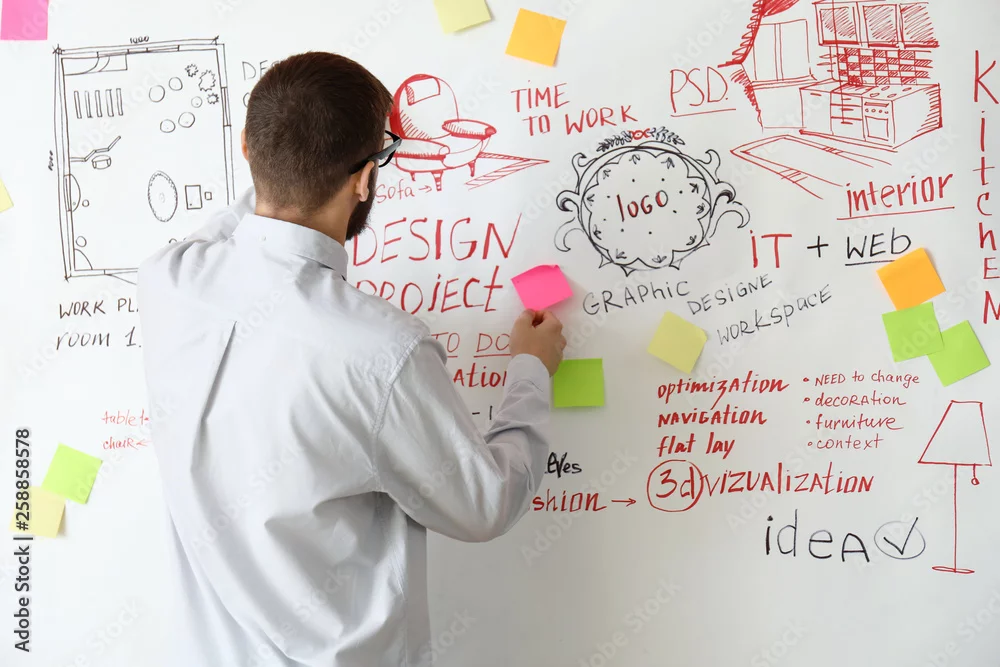 TIME
TO WORK
PSD.
KitcheN
Sofa
DESIGN
PROJECT
TO DO
LOGO
interior
iT + WEB
GRAPHIC DESIGNE
WORKSPACE
WORK PLA
ROOM 1.
table
chair
optimization
NAVIGATION
flat lay
3d VIZUALIZATION
• NEED to change
• decoration
• furniture
• context
shion →
idea
Adobe Stock | #258858578
Adobe Stock